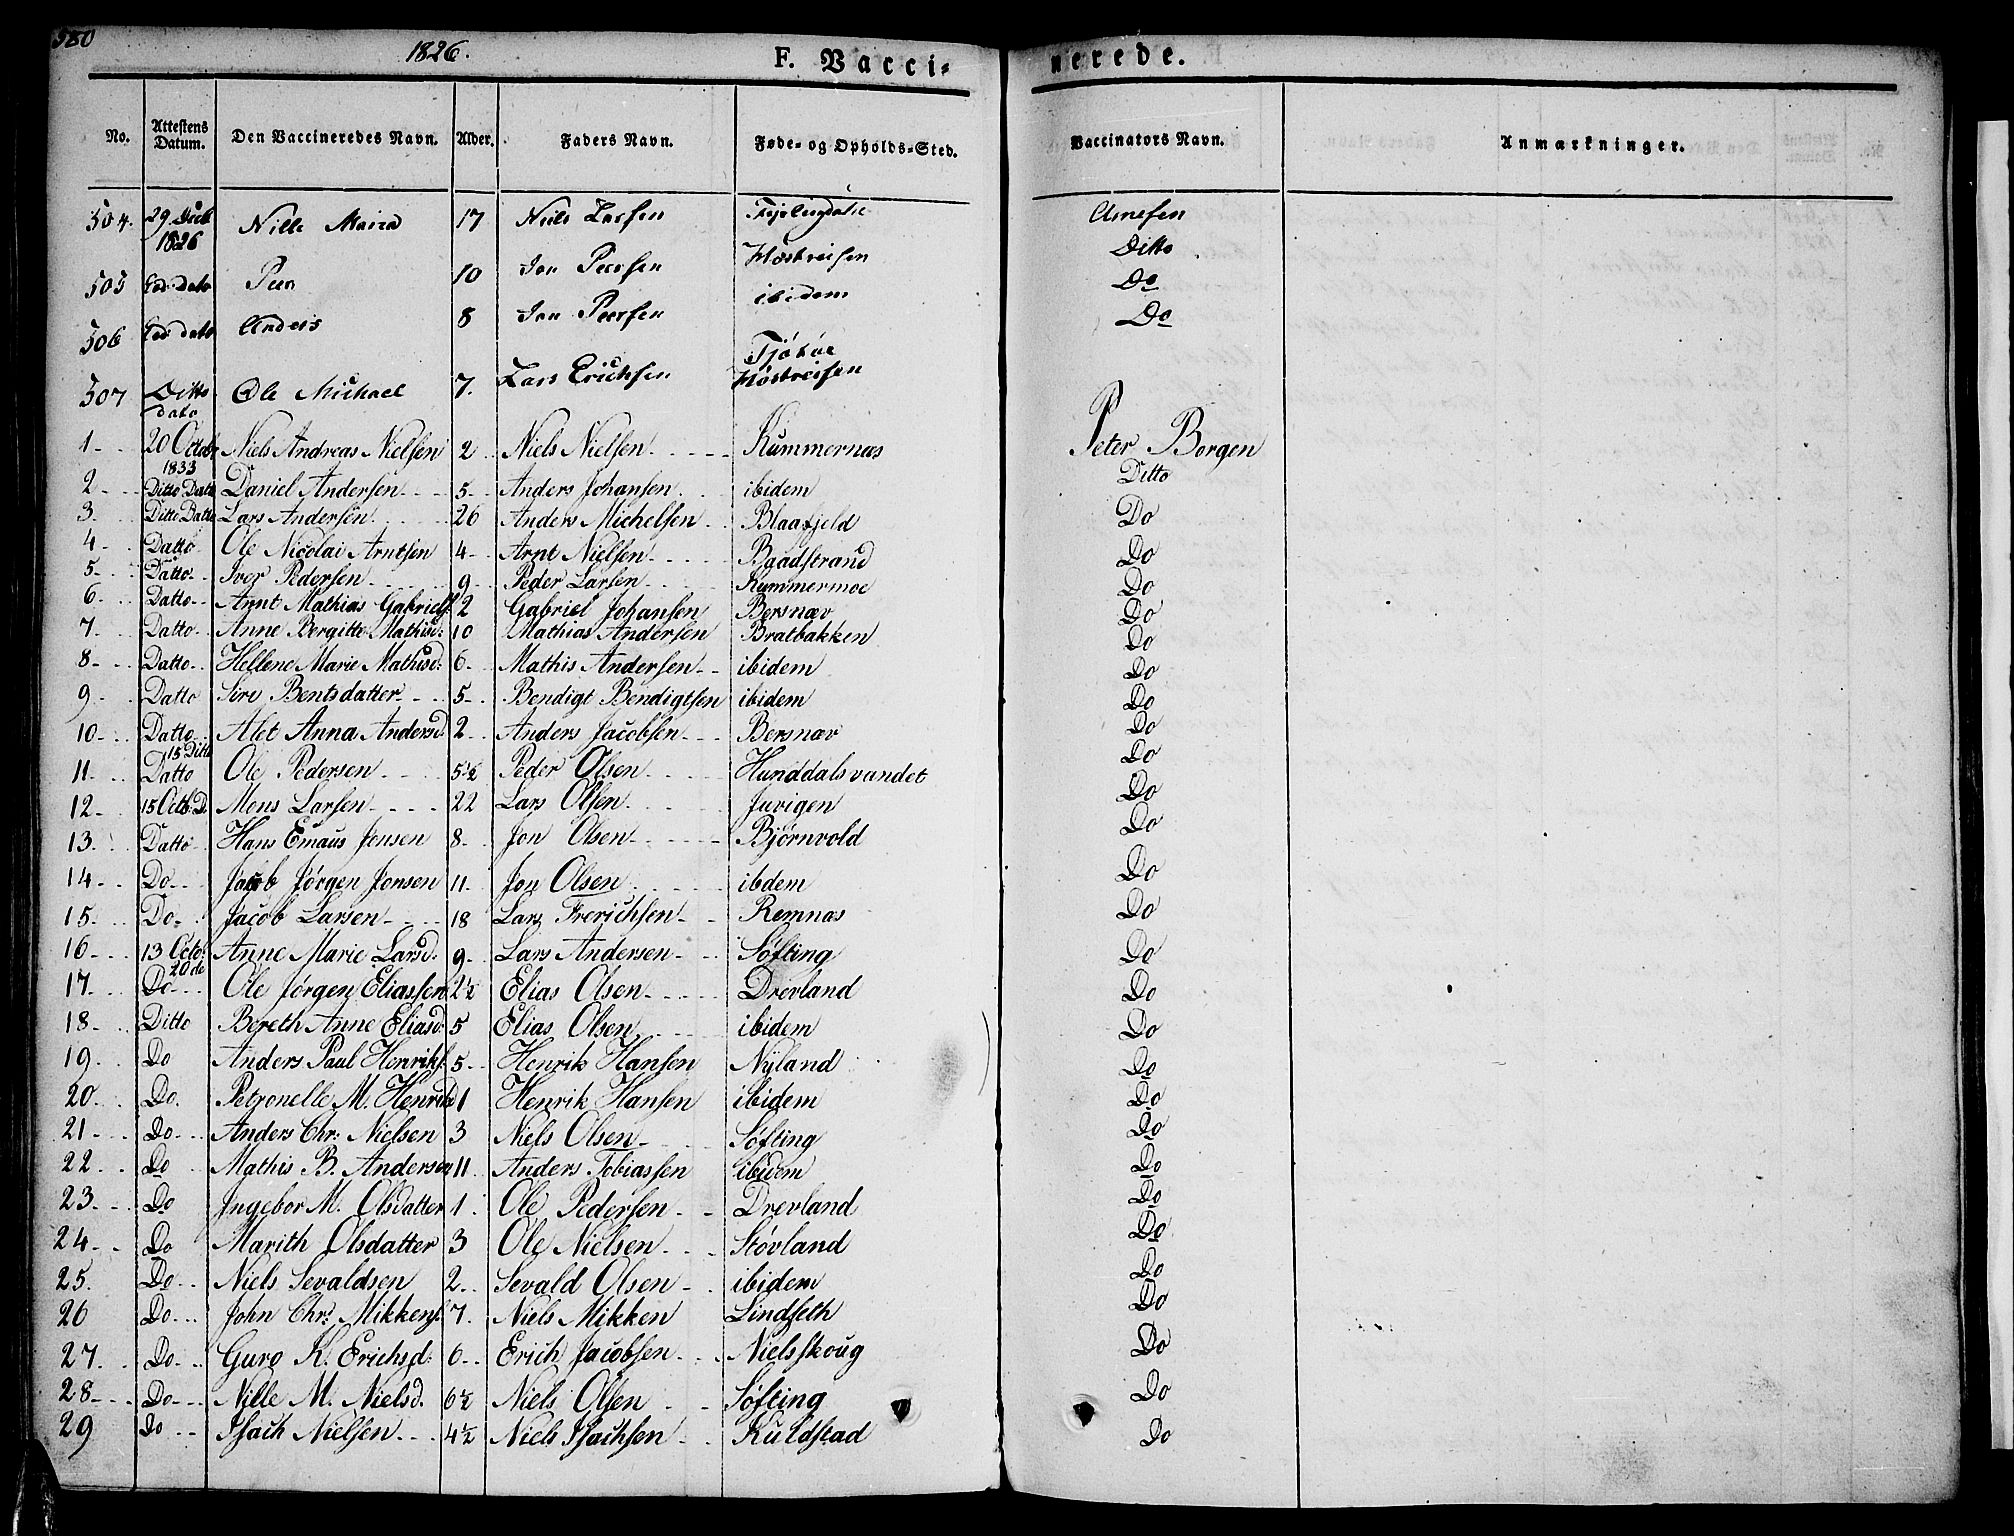 380
1826.
F. Vacci-
nerede.
No. Attestens Datum. Den Vaccineredes Navn. Alder. Faders Navn. Føde- og Opholds-Sted. Vaccinators Navn. Anmærkninger.
504. 29 Decb 1826 Nille Maria 17 Niels Larsen Arnesen
505 Eod: dato Peer 10 Jon Peersen Høstreisen Ditto
506 Eod: dato Anders 8 Jon Peersen ibidem Do
307 Ditto dato Ole Michael 7. Lars Erichsen Høstreisen Do
1 20 Octobr 1833 Niels Andreas Nielsen 2 Niels Nielsen Kummernæs Peter Borgen
2 Ditto Datto Daniel Andersen 5 Anders Johansen ibidem Ditto
3 Ditto Datto Lars Andersen 26 Anders Michelsen Blaafjeld Do
4 Datto Ole Nicolai Arntsen 4 Arnt Nielsen Baadstrand Do
5 Datto Iver Pedersen 9 Peder Larsen Kummermoe Do
6 Datto Arnt Mathias Gabriels: 2 Gabriel Johansen Bersnæv Do
7 Datto Anne Bergitte Mathisd: 10 Mathias Andersen Bratbakken Do
8 Datto Hellene Marie Mathisd: 6 Mathis Andersen ibidem Do
9 Datto Siri Bentsdatter 5 Bendigt Bendigtsen ibidem Do
10 Datto Alet Anna Andersd: 2 Anders Jacobsen Bersnæv Do
11 15 Ditto Datto Ole Pedersen 5½ Peder Olsen Hunddalsvandet Do
12 15 Octb: D. Mons Larsen 22 Lars Olsen Juvigen Do
13 Datto Hans Emaus Jonsen 8 Jon Olsen Bjørnvold Do
14 Do Jacob Jørgen Jonsen 11 Jon Olsen ibdem Do
15 Do Jacob Larsen 18 Lars Frerichsen Remnæs Do
16 13 Octo: Anne Marie Larsd: 9 Lars Andersen Søfting Do
17 20de Do Ole Jørgen Eliassen 2½ Elias Olsen Drevland Do
18 Ditto Bereth Anne Eliasd: 5 Elias Olsen ibidem Do
19 Do Anders Paul Henriks: 5 Henrik Hansen Nÿland Do
20 Do Petronelle M. Henrikd 1 Henrik Hansen ibidem Do
21 Do Anders Chr: Nielsen 3 Niels Olsen Søfting Do
22 Do Mathis B. Andersen 11 Anders Tobiassen ibidem Do
23 Do Ingebor M. Olsdatter 1 Ole Pedersen Drevland Do
24 Do Marith Olsdatter 3 Ole Nielsen Støvland Do
25. Do Niels Sevaldsen 2 Sevald Olsen ibidem Do
26 Do John Chr: Mikkens: 7. Niels Mikken Lindseth Do
27 Do Guro K. Erichsd: 6 Erich Jacobsen Nielsskoug Do
28 Do Nille M. Nielsd. 6½ Niels Olsen Søfting Do
29 Do Isach Nielsen 4½ Niels Isachsen Kuldstad Do